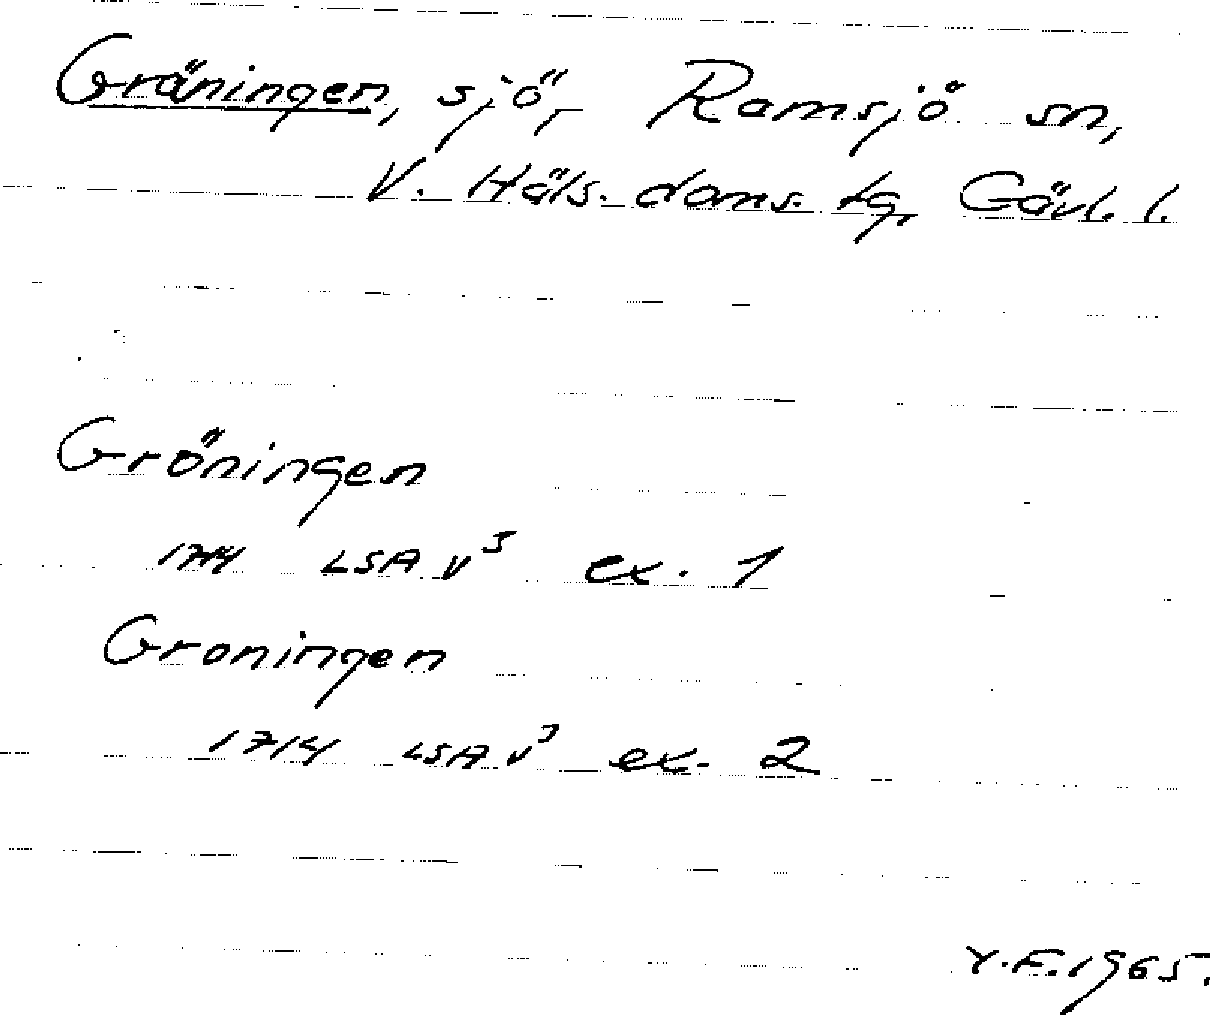 Gräningen, sjö, Ramsjö sn,
V. Häls. doms. tg, Gävl. l.
Gröningen
1714 LSA V³ ex. 1
Groningen
1714 LSA V³ ex. 2
Y.F. 1965.